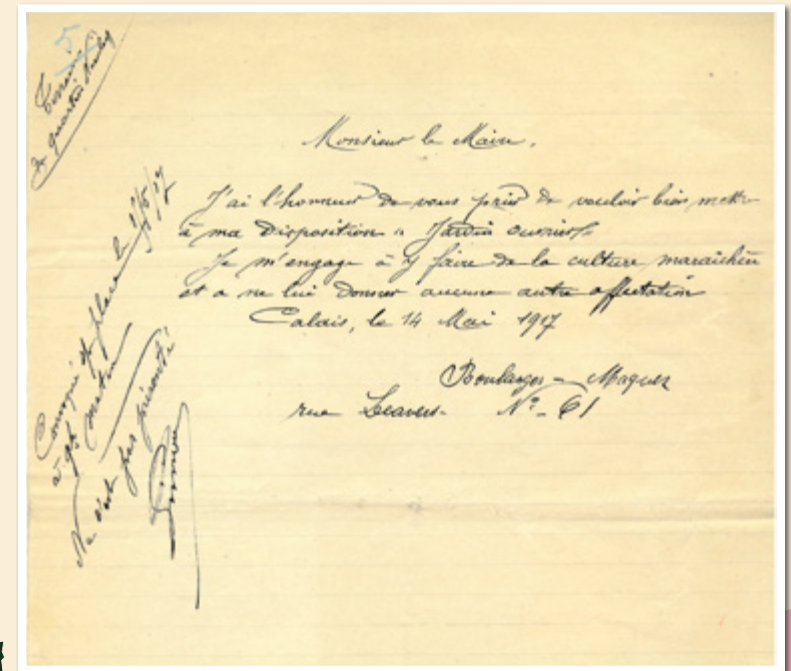 5
Terrain
du quartier
Monsieur le Maire,
J'ai l'honneur de vous prier de vouloir bien mettre
à ma disposition " Jardin ouvrier.
Je m'engage à y faire de la culture maraichère
et a ne lui donner aucune autre affectation
Calais, le 14 Mai 1917
Boulanger - Maquer
rue Leavers - N° 61
Convoqué sur place le
à 9h matin
Ne s'est pas présenté